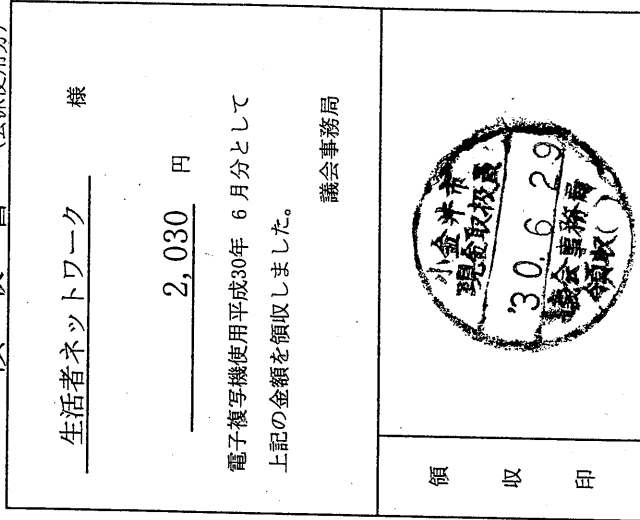 生活者ネットワーク 様
2,030 円
電子複写機使用平成30年 6 月分として
上記の金額を領収しました。
議会事務局
領収印
小金井市
現金取扱員
'30. 6. 29
議会事務局
領収( )